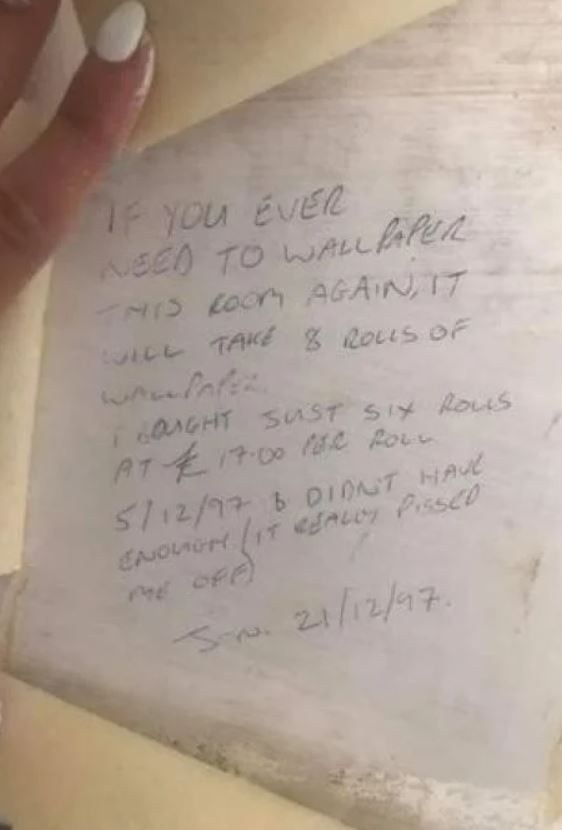 IF YOU EVER
NEED TO WALLPAPER
THIS ROOM AGAIN, IT
WILL TAKE 8 ROLLS OF
WALLPAPER.
I BOUGHT JUST SIX ROLLS
AT £17.00 PER ROLL
5/12/97 & DIDNT HAVE
ENOUGH (IT REALLY PISSED
ME OFF)
21/12/97.